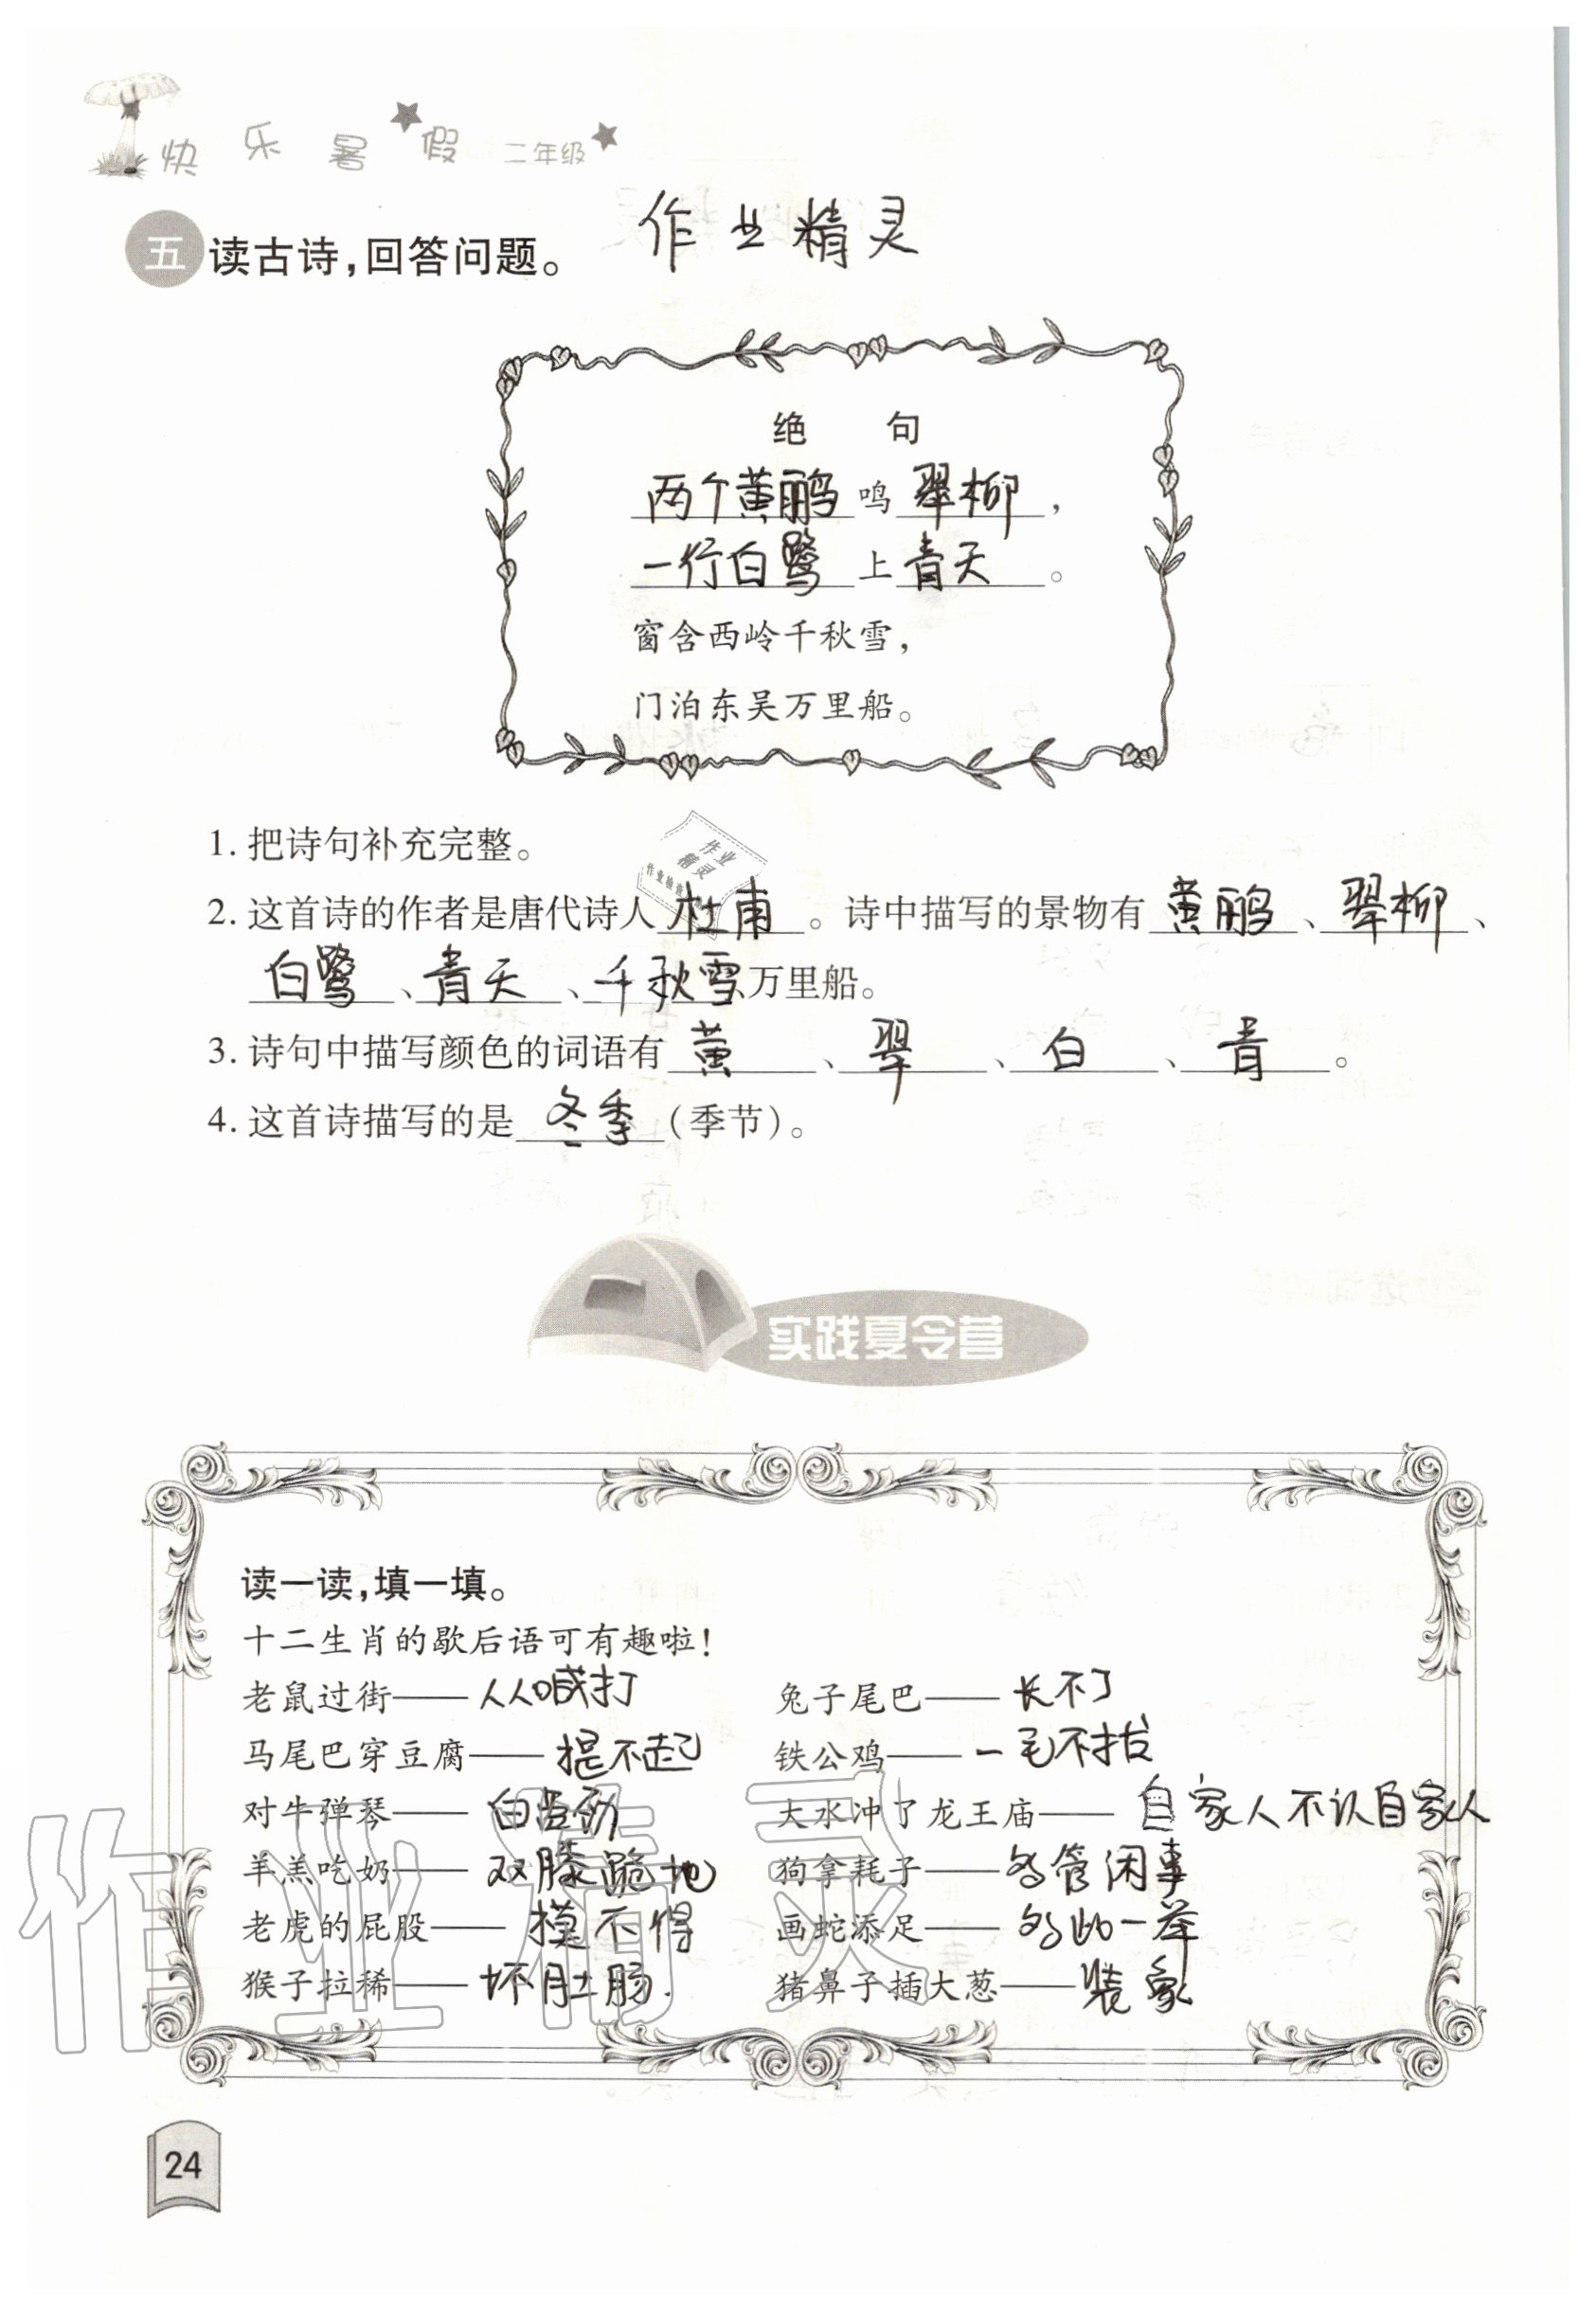 快乐暑假 二年级
作业精灵
五 读古诗，回答问题。
绝 句
两个黄鹂鸣翠柳，
一行白鹭上青天。
窗含西岭千秋雪，
门泊东吴万里船。
1. 把诗句补充完整。
作业
精灵
2. 这首诗的作者是唐代诗人杜甫。诗中描写的景物有黄鹂、翠柳、
白鹭、青天、千秋雪、万里船。
3. 诗句中描写颜色的词语有黄、翠、白、青。
4. 这首诗描写的是冬季（季节）。
实践夏令营
读一读，填一填。
十二生肖的歇后语可有趣啦！
老鼠过街——人人喊打 兔子尾巴——长不了
马尾巴穿豆腐——提不起 铁公鸡——一毛不拔
对牛弹琴——白费劲 大水冲了龙王庙——自家人不认自家人
羊羔吃奶——双膝跪地 狗拿耗子——多管闲事
老虎的屁股——摸不得 画蛇添足——多此一举
猴子拉稀——坏肚肠. 猪鼻子插大葱——装象
作业精灵
24